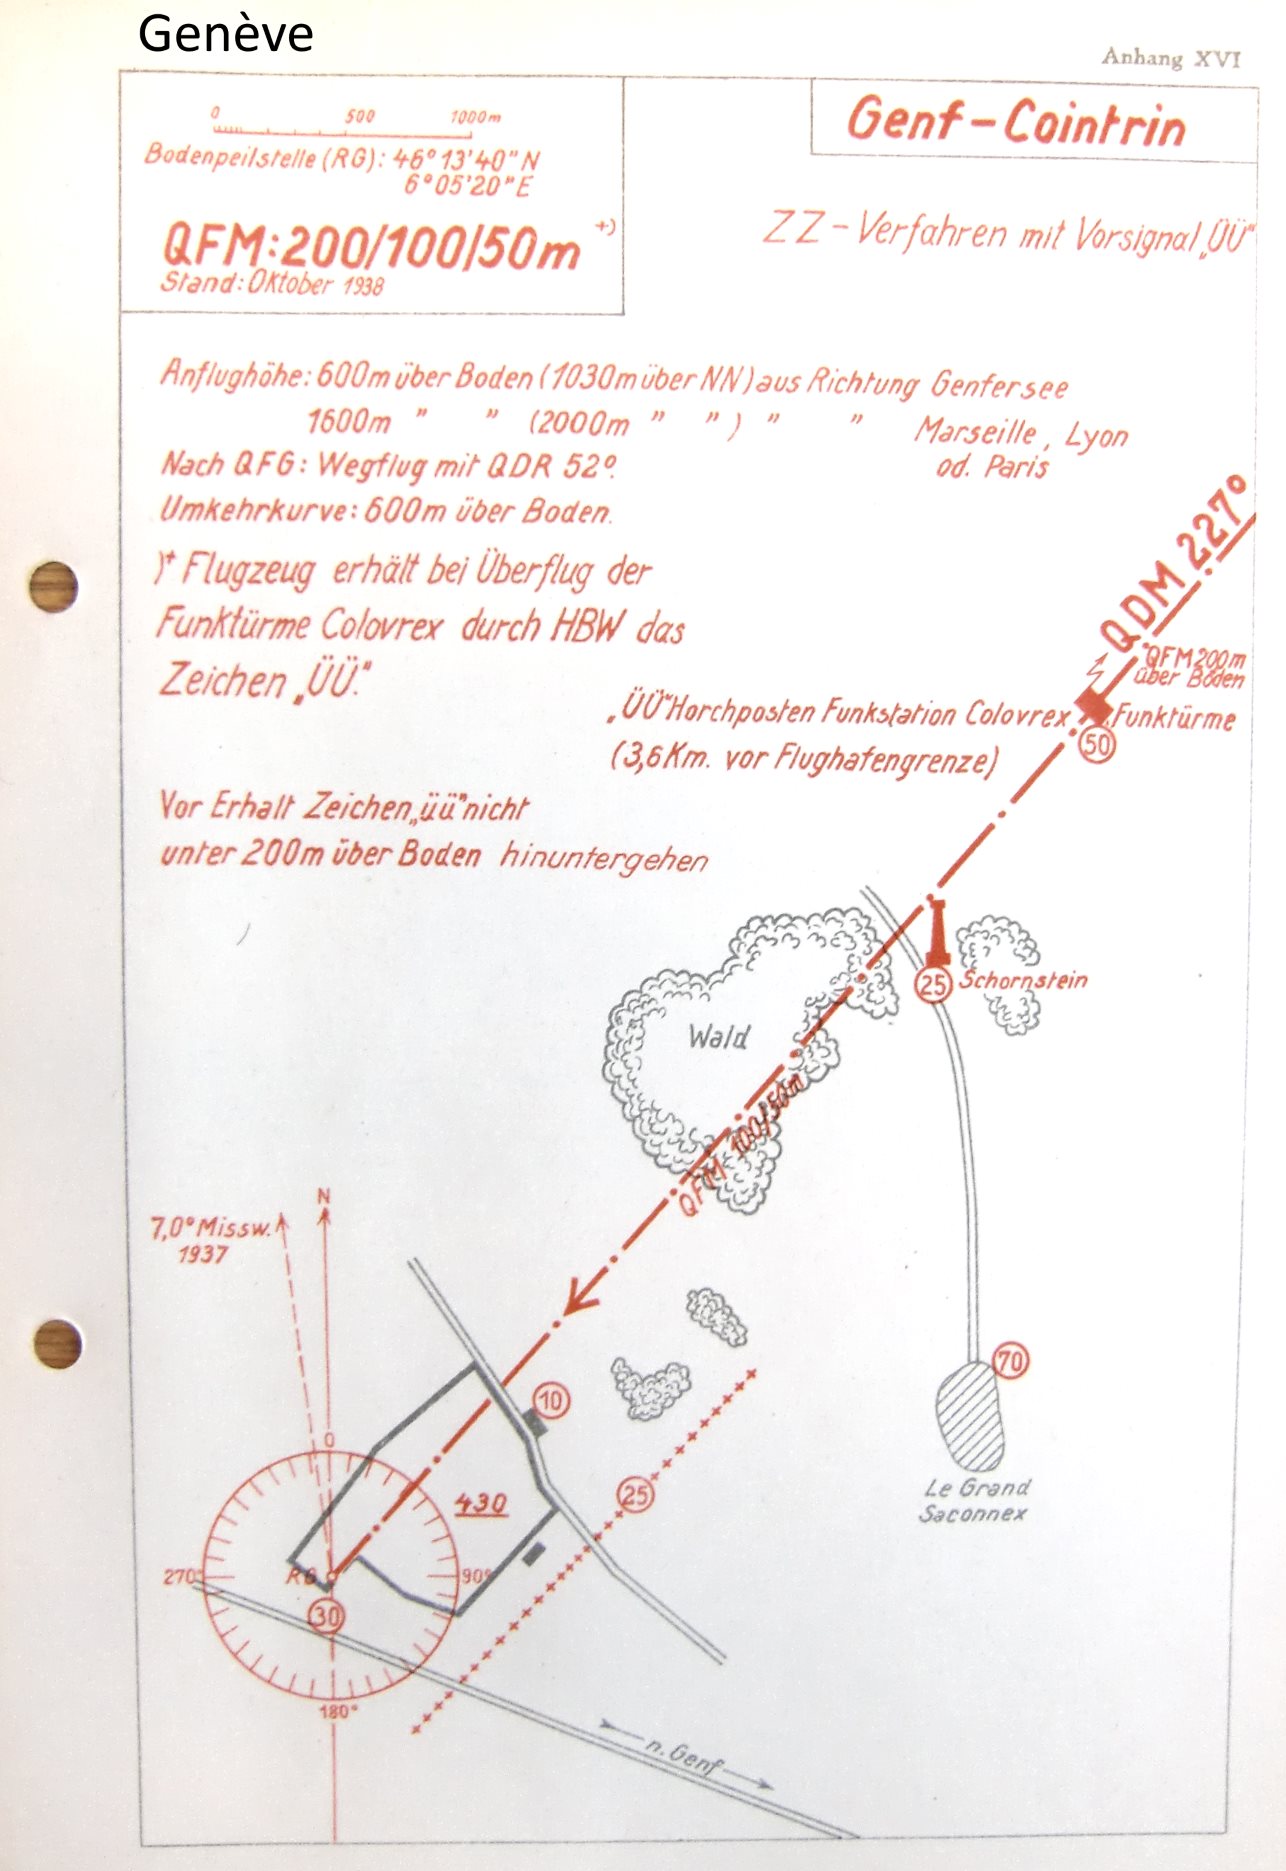 Genève
Anhang XVI
0 500 1000m
Bodenpeilstelle (RG): 46° 13'40" N
6° 05'20" E
QFM: 200/100/50m +)
Stand: Oktober 1938
Genf-Cointrin
ZZ-Verfahren mit Vorsignal „ÜÜ"
Anflughöhe: 600m über Boden (1030m über NN) aus Richtung Genfersee
1600m " " (2000m " ") " " Marseille, Lyon
od. Paris
Nach QFG: Wegflug mit QDR 52°.
Umkehrkurve: 600m über Boden.
)+ Flugzeug erhält bei Überflug der
Funktürme Colovrex durch HBW das
Zeichen „ÜÜ."
QDM 227°
QFM 200m
über Boden
„ÜÜ" Horchposten Funkstation Colovrex Funktürme
(3,6Km. vor Flughafengrenze)
50
Vor Erhalt Zeichen „üü" nicht
unter 200m über Boden hinuntergehen
25 Schornstein
Wald
QFM 100/50m
N
7,0° Missw.
1937
70
10
0
430
25
Le Grand
Saconnex
270° RG 90°
30
180°
n. Genf